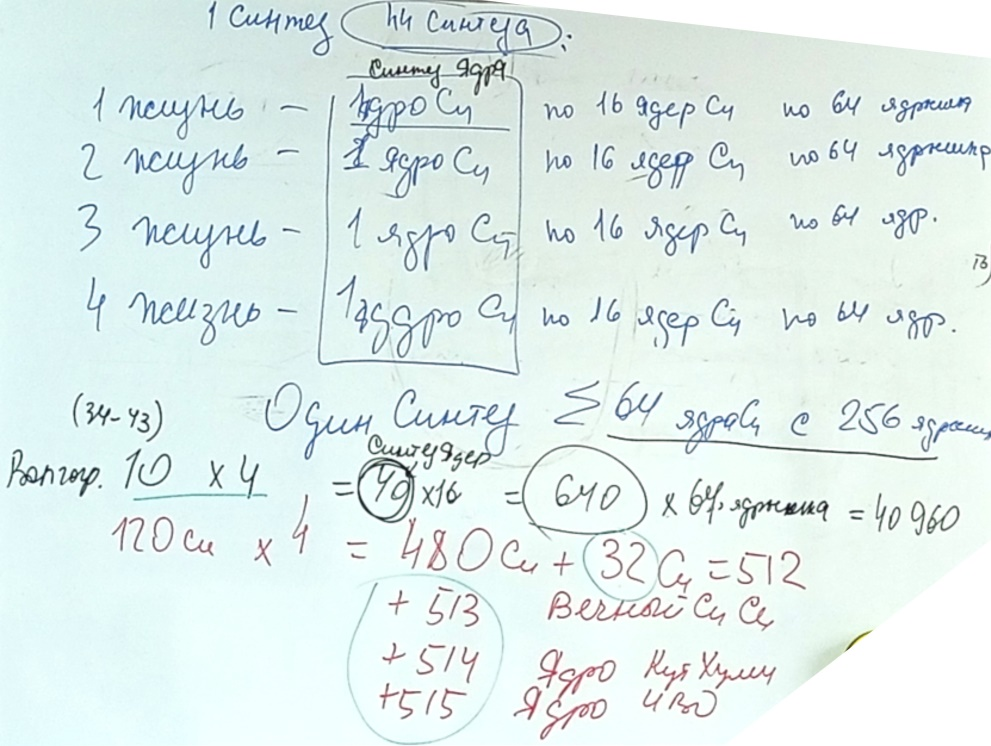 1 Синтез 44 Синтеза:
Синтез Ядра
1 жизнь - 1 ядро Си по 16 ядер Си по 64 ядрышка
2 жизнь - 1 ядро Си по 16 ядер Си по 64 ядрышка
3 жизнь - 1 ядро Си по 16 ядер Си по 64 ядр.
4 жизнь - 1 ядро Си по 16 ядер Си по 64 ядр.
(34-43) Один Синтез Σ 64 ядра Си с 256 ядрыш
Синтез Ядер
10 x 4 = 40 x16 = 640 x 64 ядрышка = 40960
120 Си x 4 = 480 Си + 32 Си = 512
+ 513 Вечной Си Си
+ 514 Ядро Кут Хуми
+515 Ядро ИВО